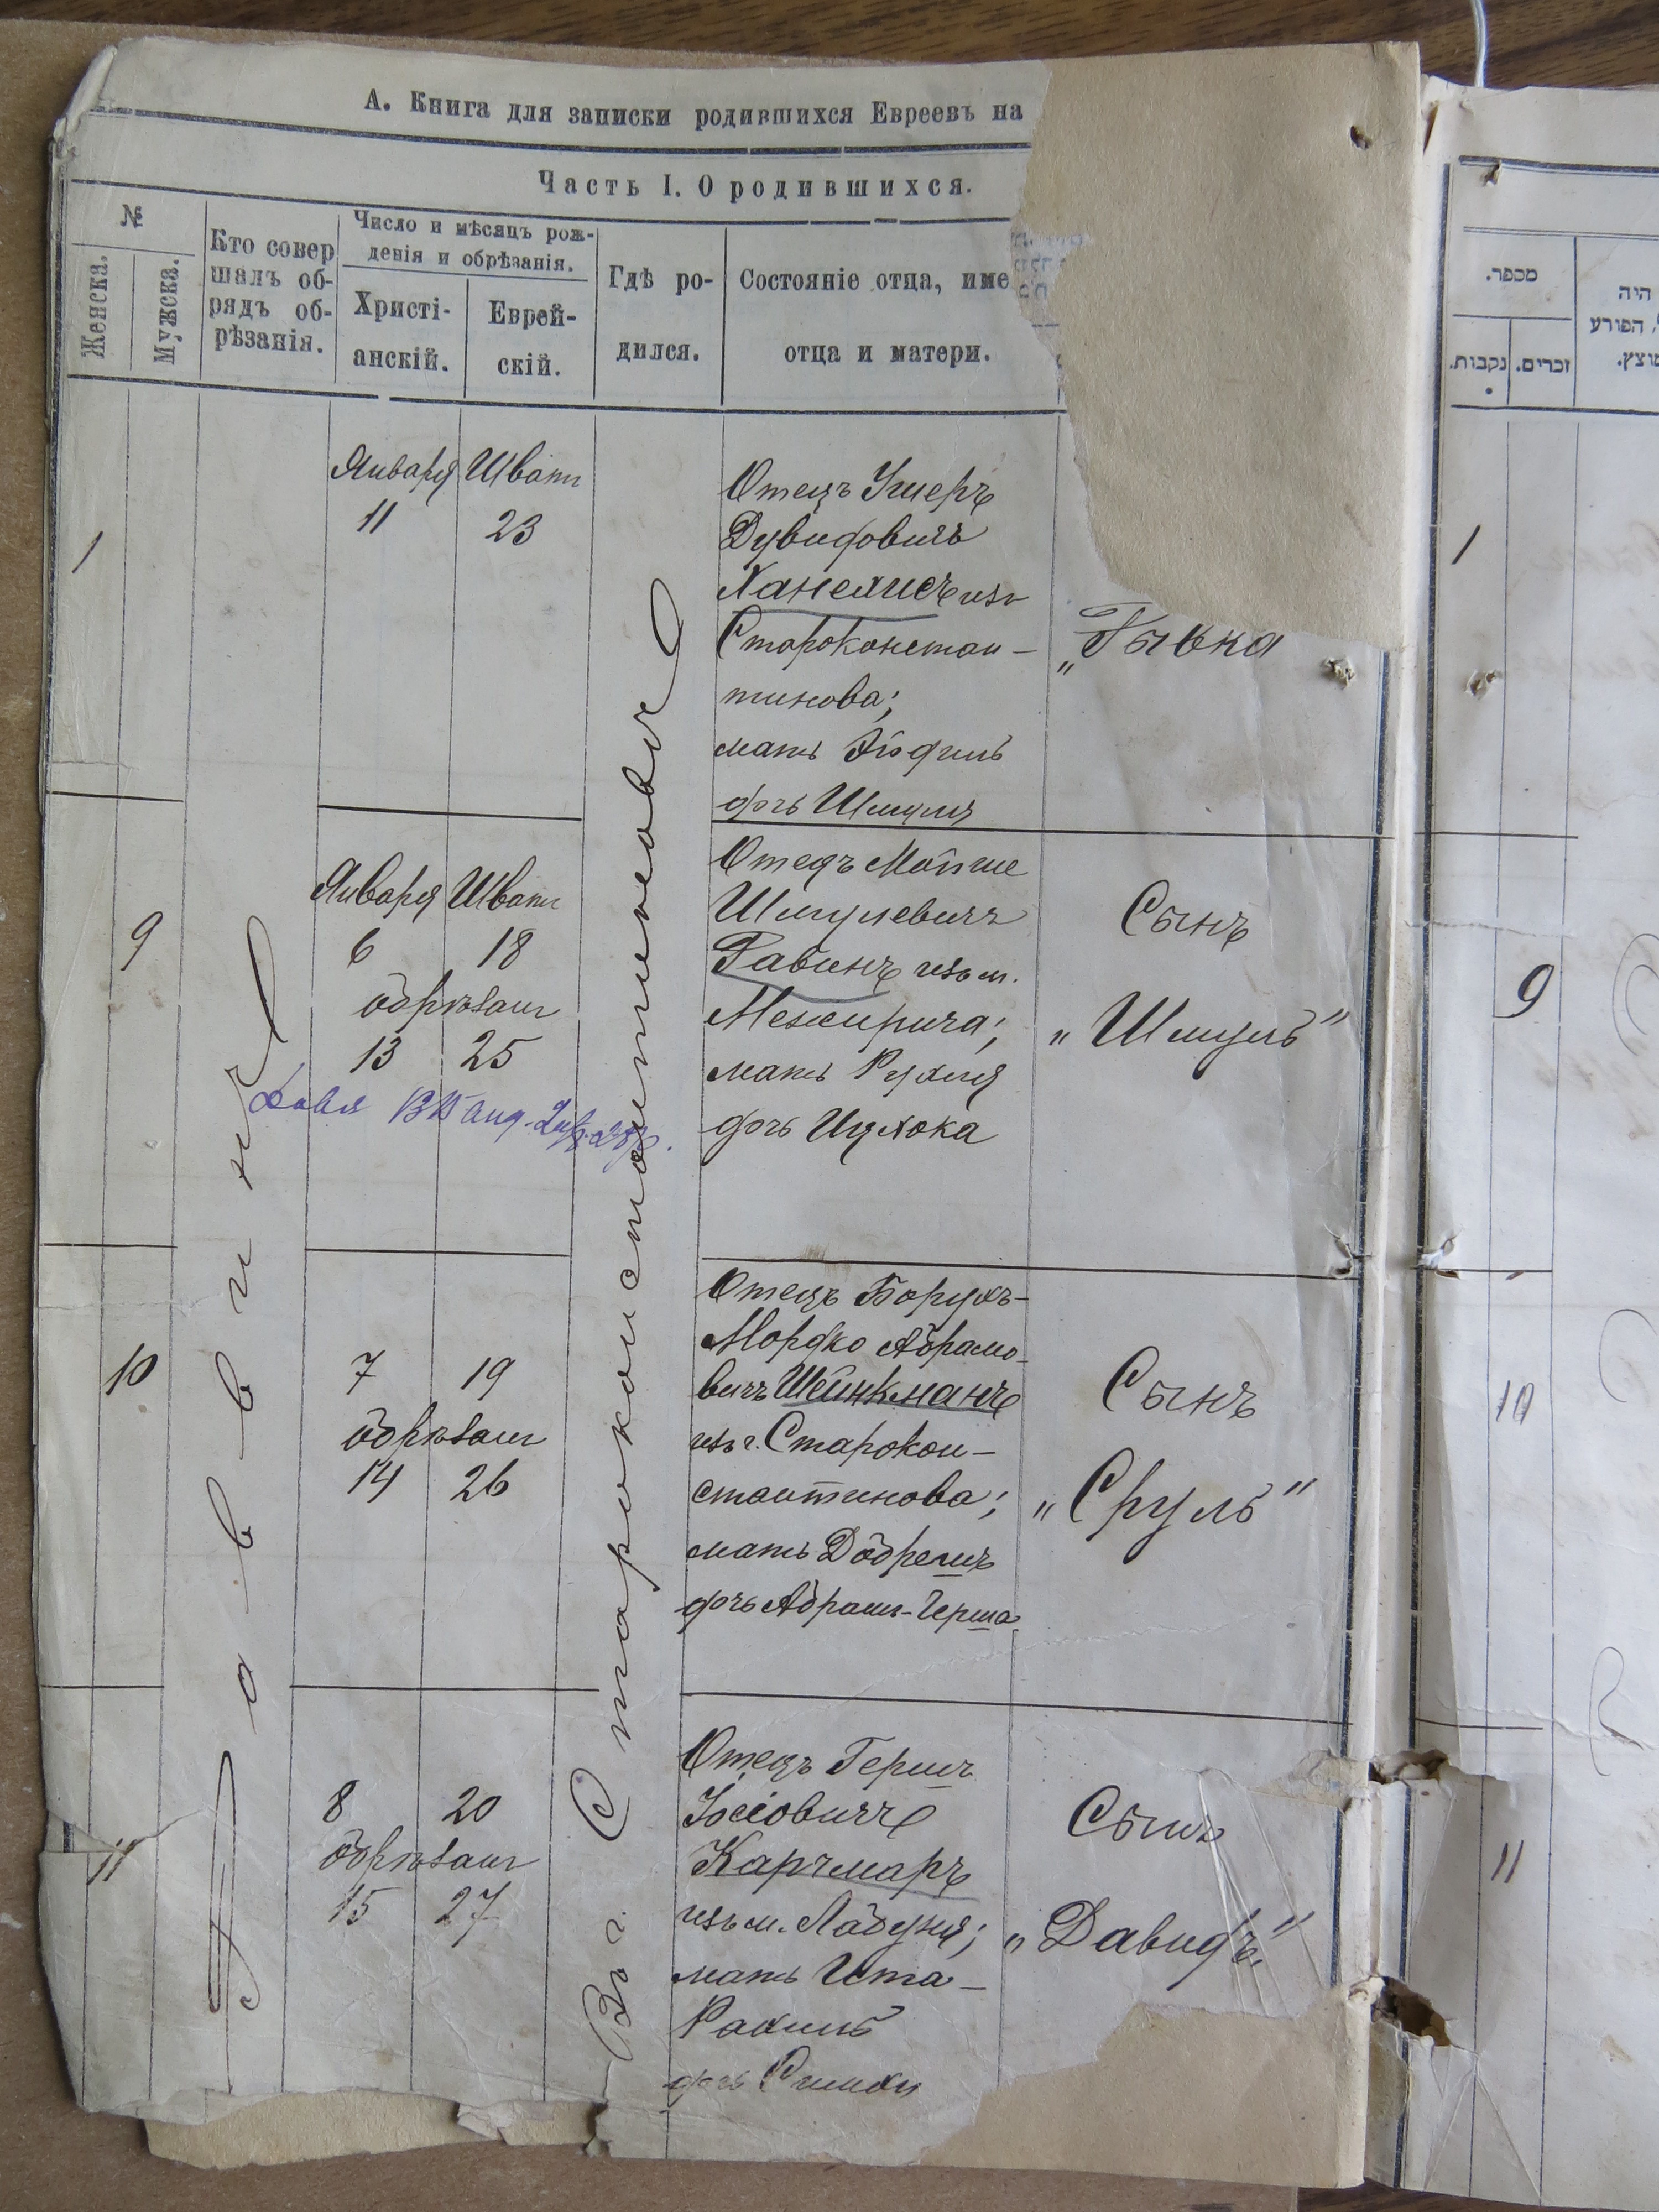 А. Книга для записки родившихся Евреевъ на
Часть I. О родившихся.
№
Женска.
Мужска.
Кто совер
шалъ об-
рядъ об-
рѣзанія.
Число и мѣсяцъ рож-
денія и обрѣзанія.
Христі-
анскій.
Еврей-
скій.
Гдѣ ро-
дился.
Состояніе отца, име
отца и матери.
1
Января Шватъ
11 23
Отецъ Ушеръ
Дувидовичъ
Ханелисъ изъ
Староконстан-
тинова;
мать Эйдиль
дочь Шмуля
„Рывка
9
Января Шватъ
6 18
обрѣзанъ
13 25
Отецъ Мойше
Шмулевичъ
Рабинъ изъ м.
Межирича;
мать Рухля
дочь Ицхока
Сынъ
„Шмуль"
10
7 19
обрѣзанъ
14 26
Отецъ Борухъ-
Мордко Абрамо-
вичъ Шейнкманъ
изъ г. Старокон-
стантинова;
мать Добрешъ
дочь Абрамъ-Герша
Сынъ
„Сруль"
11
8 20
обрѣзанъ
15 27
Отецъ Гершъ
Іосіовичъ
Карчмаръ
изъ м. Лабуня;
мать Ита-
Рахиль
дочь Симхи
Сынъ
„Давидъ"
Раввинъ
Въ г. Староконстантиновѣ
מספר.
נקבות.
זכרים.
היה
הפורע
1
9
10
11